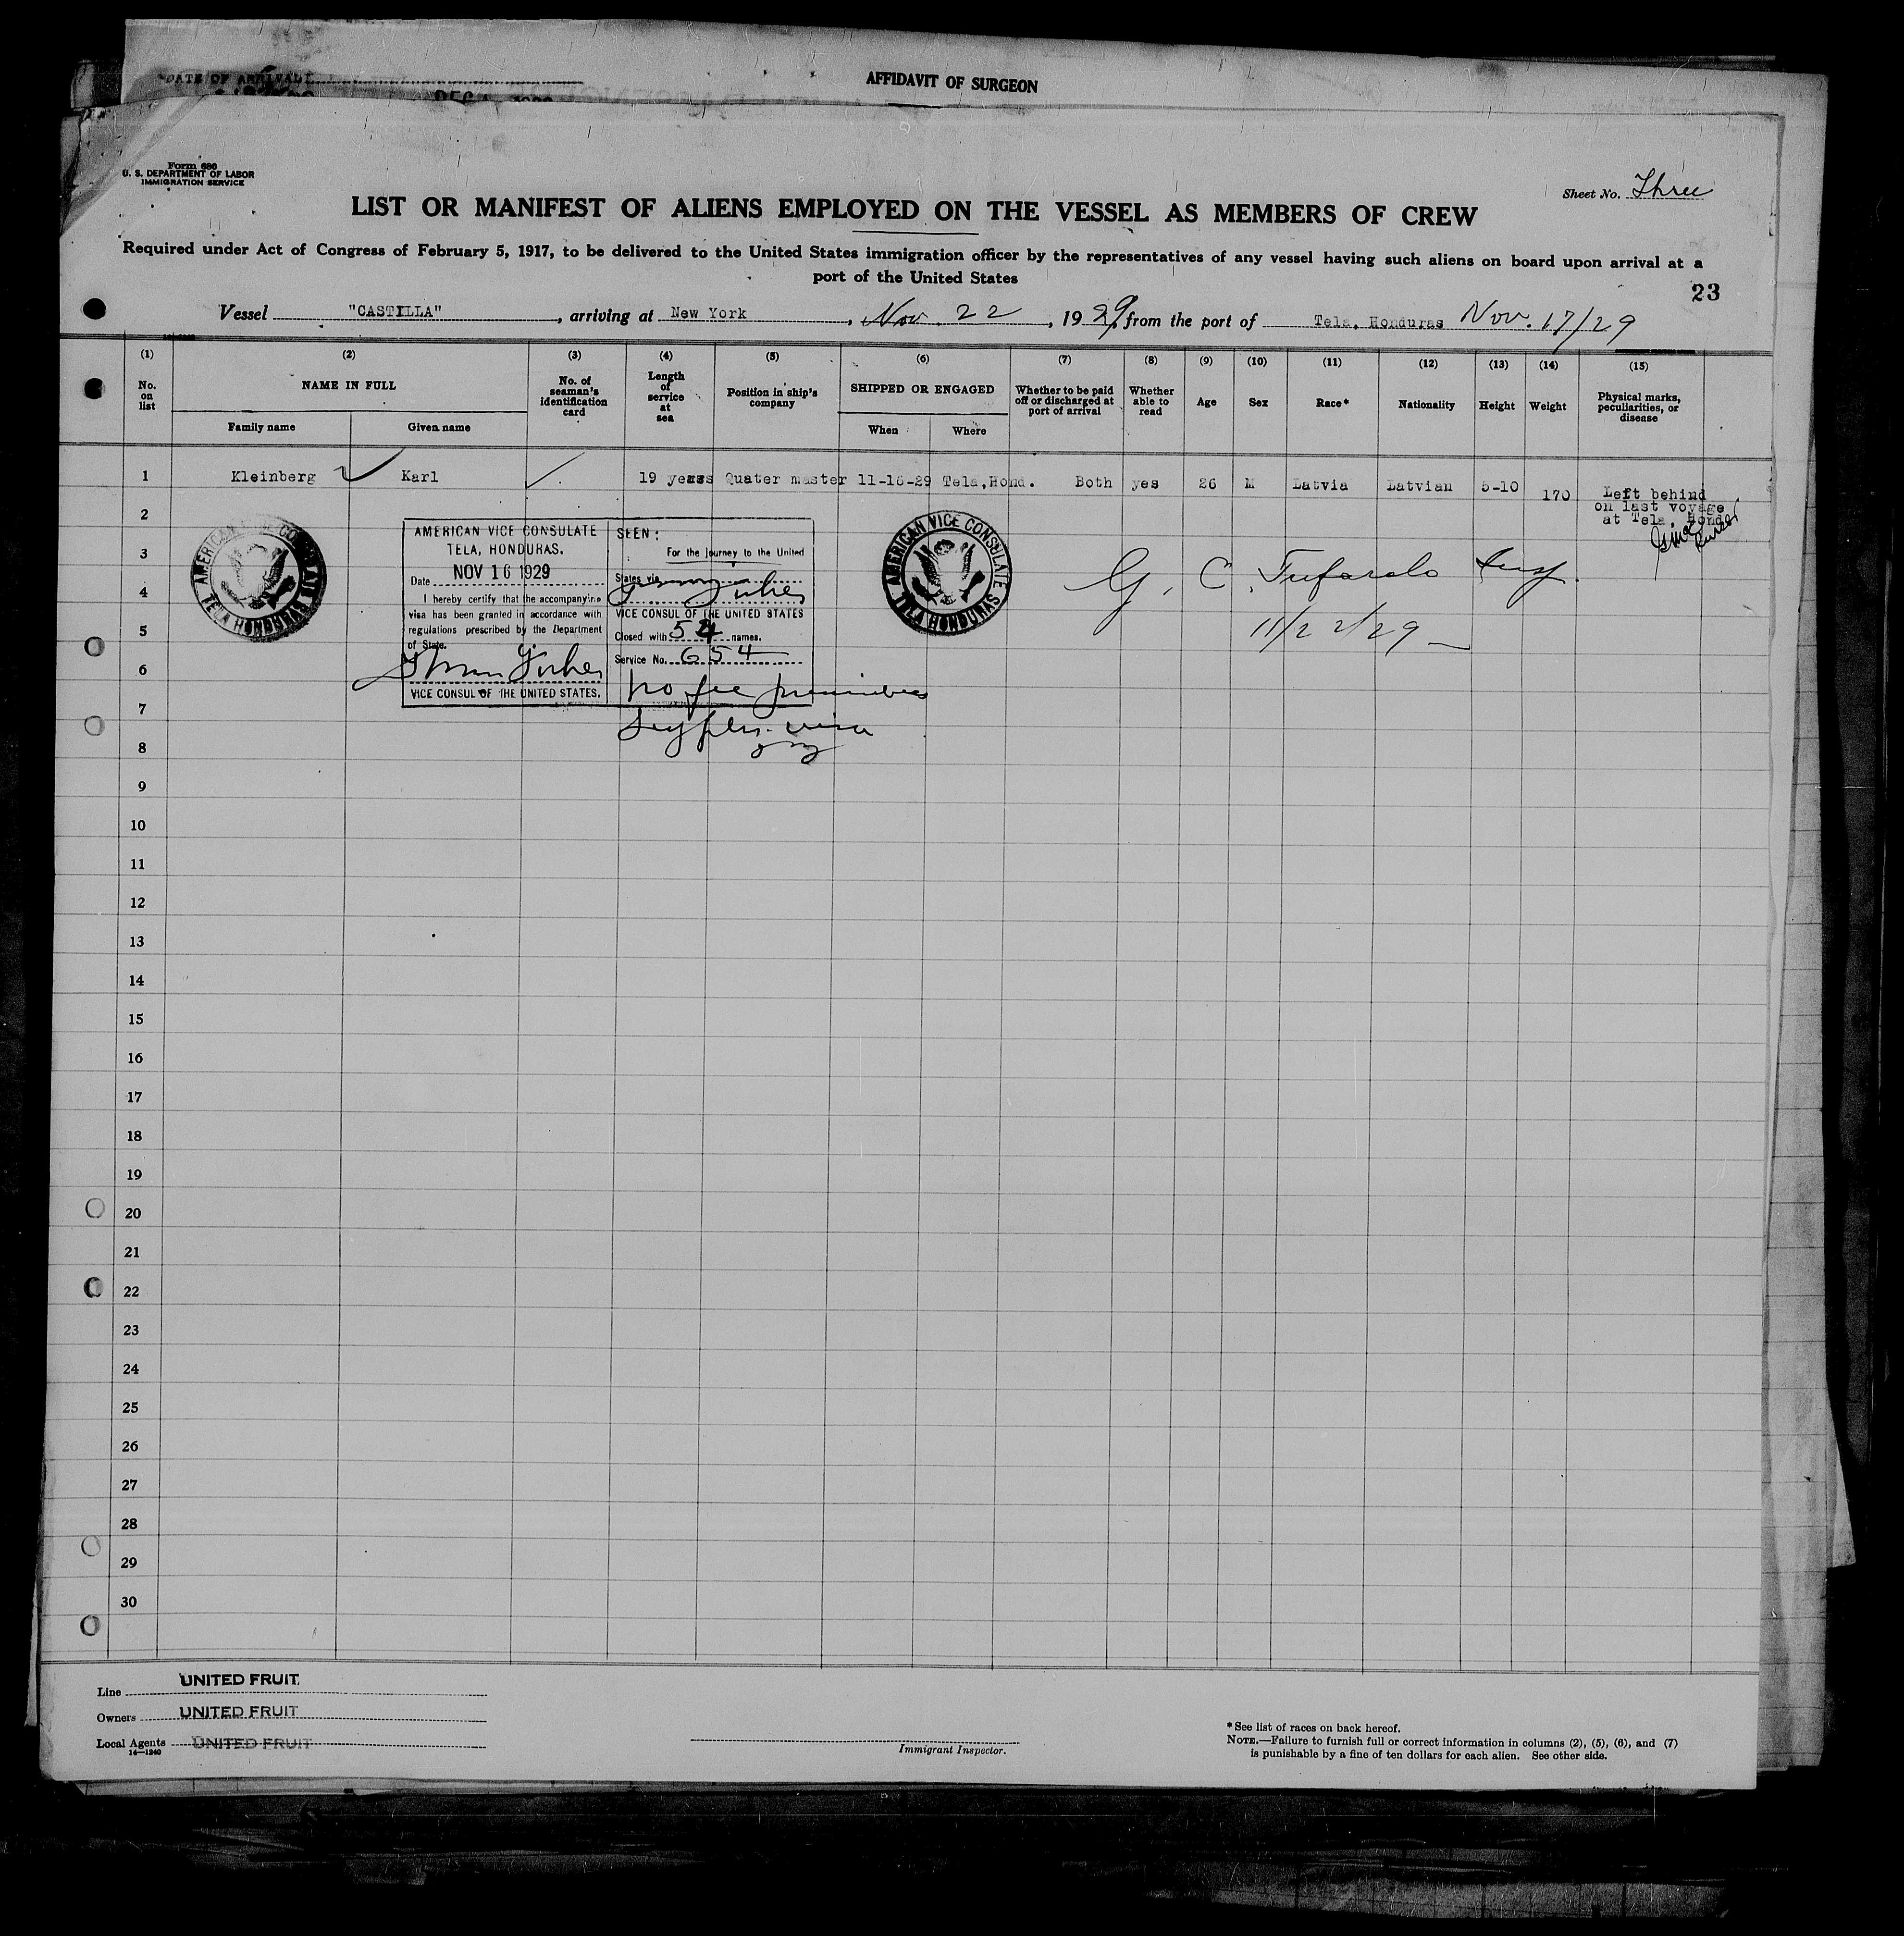 DATE OF ARRIVAL
AFFIDAVIT OF SURGEON
Form 680
U. S. DEPARTMENT OF LABOR
IMMIGRATION SERVICE
Sheet No. Three
LIST OR MANIFEST OF ALIENS EMPLOYED ON THE VESSEL AS MEMBERS OF CREW
Required under Act of Congress of February 5, 1917, to be delivered to the United States immigration officer by the representatives of any vessel having such aliens on board upon arrival at a
port of the United States
23
Vessel "CASTILLA", arriving at New York, Nov. 22, 1929, from the port of Tela, Honduras Nov. 17/29
(1) (2) (3) (4) (5) (6) (7) (8) (9) (10) (11) (12) (13) (14) (15)
No. on list
NAME IN FULL
Family name
Given name
No. of seaman's identification card
Length of service at sea
Position in ship's company
SHIPPED OR ENGAGED
When
Where
Whether to be paid off or discharged at port of arrival
Whether able to read
Age
Sex
Race*
Nationality
Height
Weight
Physical marks, peculiarities, or disease
1 Kleinberg Karl 19 years Quater master 11-16-29 Tela,Hond. Both yes 26 M Latvia Latvian 5-10 170 Left behind
on last voyage
at Tela, Hond.
Purser
2
3
4
5
6
7
8
9
10
11
12
13
14
15
16
17
18
19
20
21
22
23
24
25
26
27
28
29
30
AMERICAN VICE CONSULATE
TELA HONDURAS
AMERICAN VICE CONSULATE
TELA, HONDURAS.
Date NOV 16 1929
I hereby certify that the accompanying
visa has been granted in accordance with
regulations prescribed by the Department
of State.
VICE CONSUL OF THE UNITED STATES.
SEEN:
For the journey to the United
States via
VICE CONSUL OF THE UNITED STATES
Closed with 54 names.
Service No. 654
no fee prescribed
supplem. visa
AMERICAN VICE CONSULATE
TELA HONDURAS
G. C. Tufarolo Insp.
11/22/29
Line UNITED FRUIT
Owners UNITED FRUIT
Local Agents UNITED FRUIT
14—1240
Immigrant Inspector.
*See list of races on back hereof.
NOTE.—Failure to furnish full or correct information in columns (2), (5), (6), and (7)
is punishable by a fine of ten dollars for each alien. See other side.